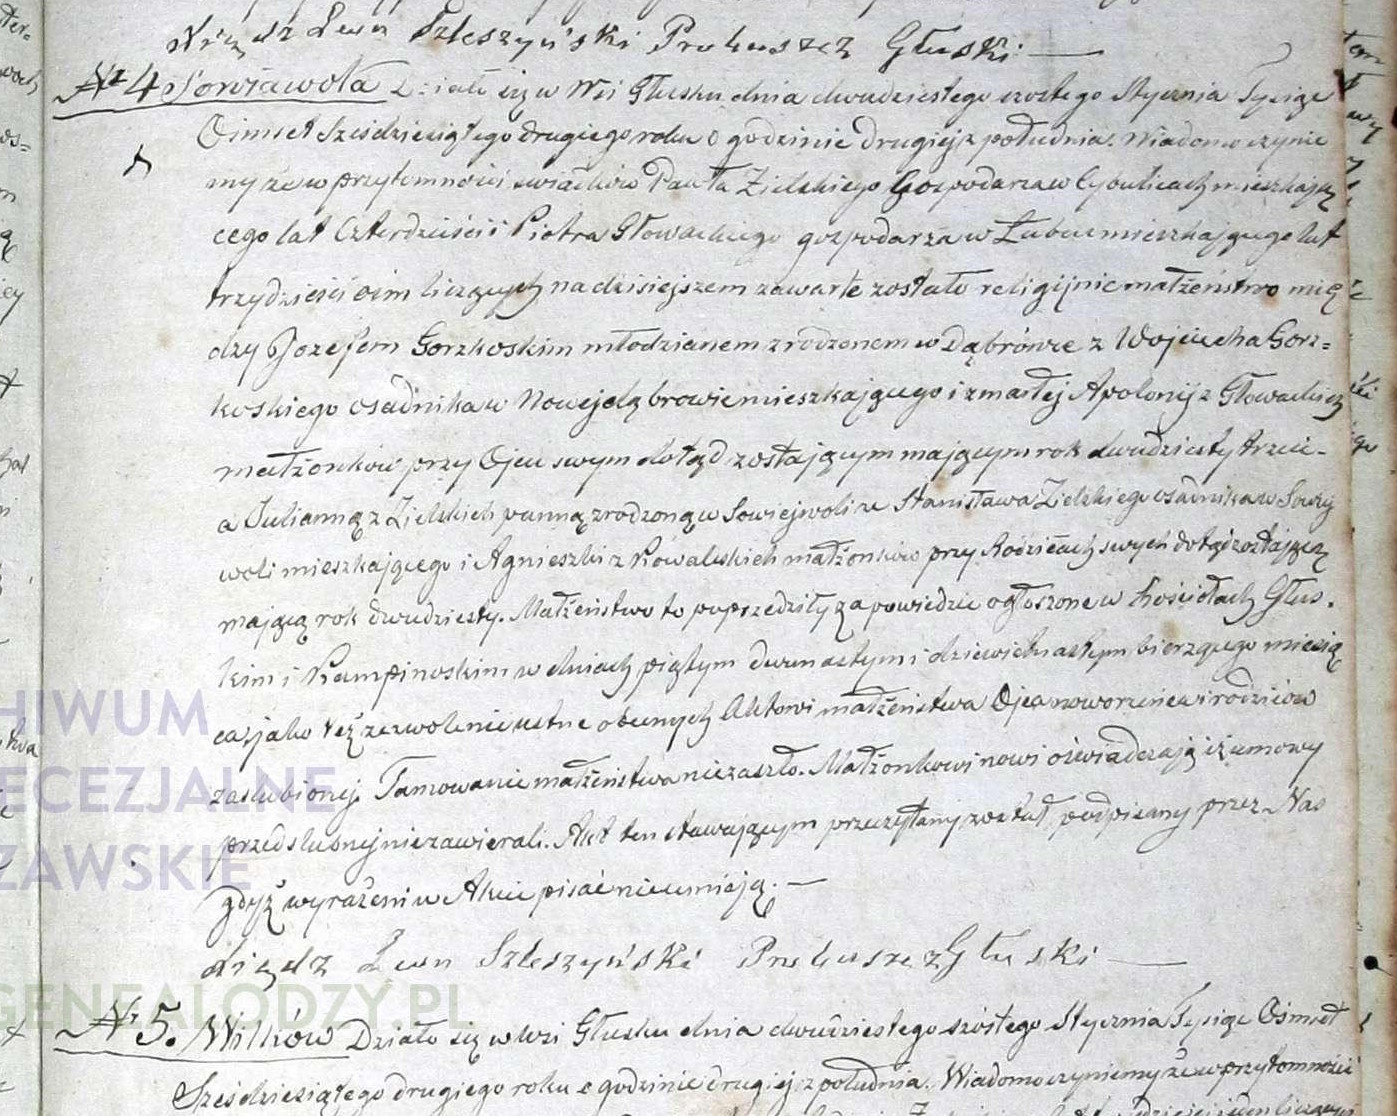 Ksiądz Leon Szleszyński Proboszcz Głuski
№ 4 Sowiawola Działo się w Wsi Głusku dnia dwudziestego szostego Stycznia Tysiąc
Ośmset Sześdziesiątego drugiego roku o godzinie drugiej z południa. Wiadomo czynie
my że w przytomności swiadków Pawła Zielskiego Gospodarza w Cybulicach mieszkają
cego lat Czterdzieści i Piotra Głowackiego gospodarza w Łubcu mieszkającego lat
trzydzieści ośm liczących na dzisiejszem zawarte zostało religijnie małżeństwo mię
dzy Jozefem Gorzkoskim młodzianem zrodzonem w Dąbrówce z Wojciecha Gorz=
koskiego osadnika w Nowejdąbrowie mieszkającego i zmarłej Apolonij z Głowackich
małżonków przy Ojcu swym dotąd zostającym mającym rok dwudziesty trzeci-
a Julianną z Zielskich panną zrodzoną w Sowiejwoli ze Stanisława Zielskiego osadnika w Sowiej
woli mieszkającego i Agnieszki z Kowalskich małżonków przy Rodzicach swych dotąd zostającą
mającą rok dwudziesty. Małżeństwo to poprzedziły zapowiedzie ogłoszone w kościołach Głus-
kim i Kampinoskim w dniach piątym dwunastym i dziewietnastym bierzącego miesią
ca jako też zezwolenie ustne obecnych Aktowi małżeństwa Ojca nowożeńca i rodziców
zaslubionej. Tamowanie małżeństwa nie zaszło. Małżonkowi nowi oświadczają iż umowy
przedslubnej niezawierali. Akt ten stawającym przeczytany został podpisany przez Nas
gdyż wyrażeni w Akcie pisać nieumieją. —
Ksiądz Leon Szleszyński Proboszcz Głuski —
№ 5. Wilków Działo się w Wsi Głusku dnia dwudziestego szóstego Stycznia Tysiąc Ośmset
Sześdziesiątego drugiego roku o godzinie drugiej z południa. Wiadomo czyniemy że w przytomności
HIWUM
ECEZJALNE
ZAWSKIE
GENEALODZY.PL